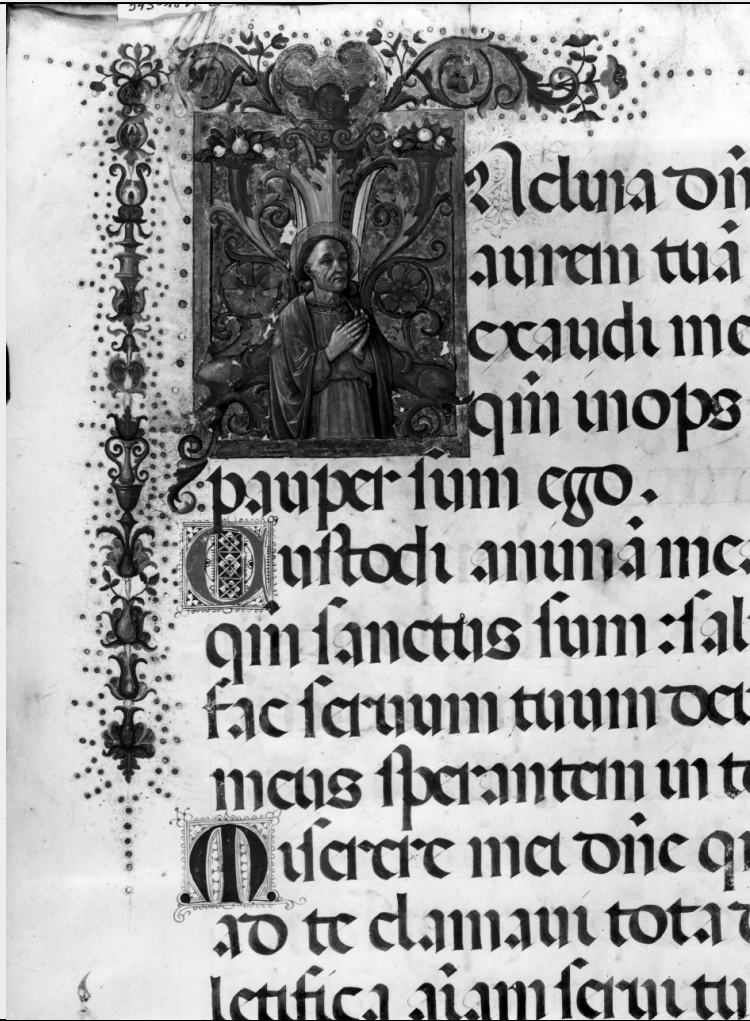 INclina dn̄
aurem tuā
exaudi me
qm̄ inops
pauper ſum ego.
Cuſtodi animā mea
qm̄ ſanctus ſum : ſal
fac ſeruum tuum deu
meus ſperantem in te
Miſerere mei dn̄e qu
ad te clamaui tota d
letifica aīam ſerui tu